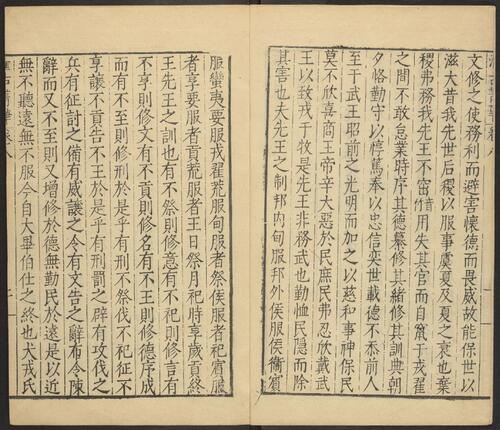 文修之使務利而避害懷德而畏威故能保世以
滋大昔我先世后稷以服事虞夏及夏之衰也棄
稷弗務我先王不窋用失其官而自竄于戎翟
之間不敢怠業時序其德纂修其緒修其訓典朝
夕恪勤守以惇篤奉以忠信奕世載德不忝前人
至于武王昭前之光明而加之以慈和事神保民
莫不欣喜商王帝辛大惡於民庶民弗忍欣戴武
王以致戎于牧是先王非務武也勤恤民隱而除
其害也夫先王之制邦內甸服邦外侯服侯衛賓
服蠻夷要服戎翟荒服甸服者祭侯服者祀賓服
者享要服者貢荒服者王日祭月祀時享歲貢終
王先王之訓也有不祭則修意有不祀則修言有
不享則修文有不貢則修名有不王則修德序成
而有不至則修刑於是乎有刑不祭伐不祀征不
享讓不貢告不王於是乎有刑罰之辟有攻伐之
兵有征討之備有威讓之令有文告之辭布令陳
辭而又不至則又增修於德無勤民於遠是以近
無不聽遠無不服今自大畢伯仕之終也犬戎氏